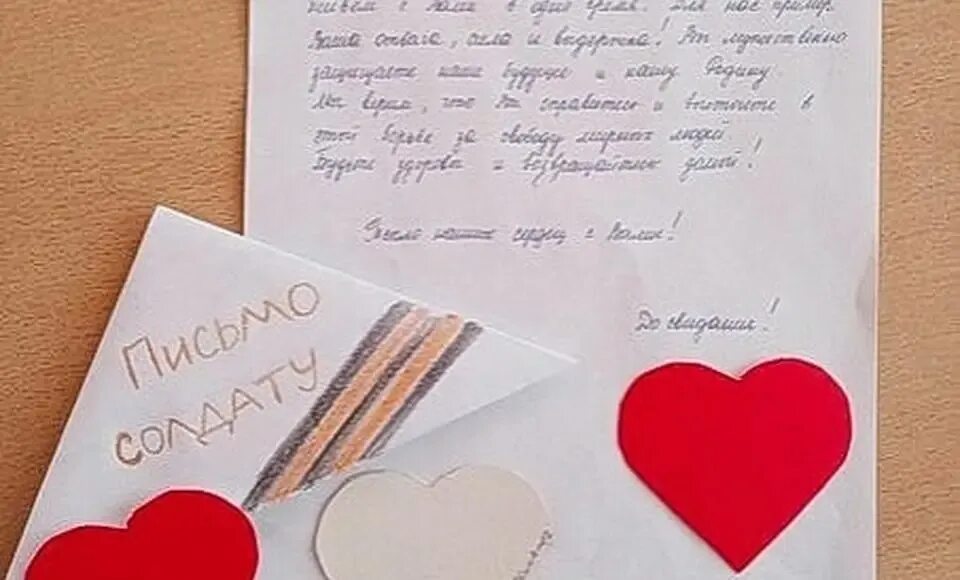 живём с Вами в одно время. Для нас пример
Ваша отвага, сила и выдержка! Вы мужественно
защищаете наше будущее и нашу Родину.
Мы верим, что Вы справитесь и выстоите в
этой борьбе за свободу мирных людей.
Будьте здоровы и возвращайтесь домой!
Тепло наших сердец с Вами!
До свидания!
Письмо
солдату